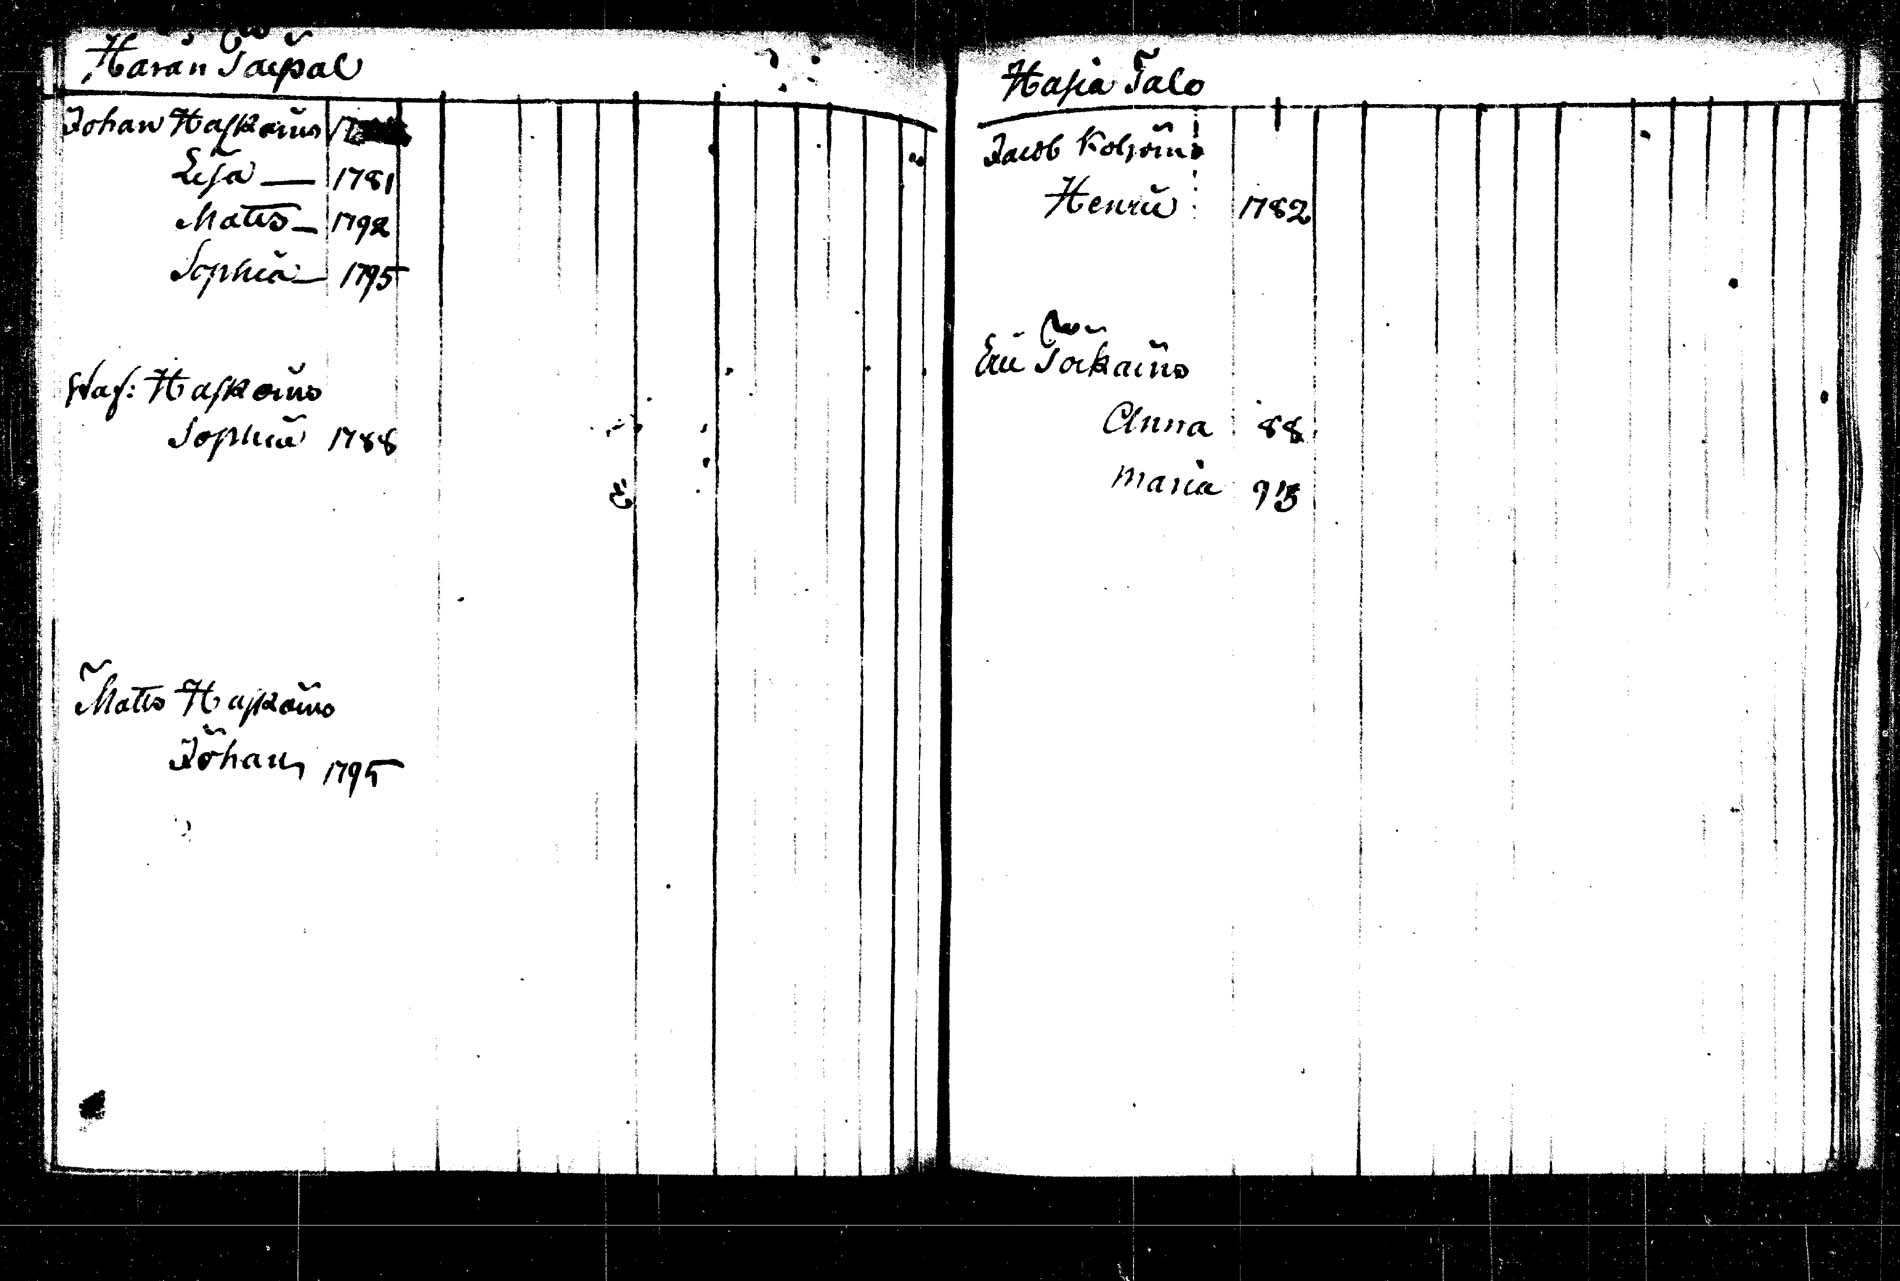 Härän Taipal
Johan Haskoins 17
Lisa — 1781
Matts — 1792
Sophia — 1795
Staf: Haskoins
Sophia 1788
Matts Haskoins
Johan 1795
Hasia Talo
Jacob
Henric 1782
Eric Tockoins
Anna 88
Maria 95